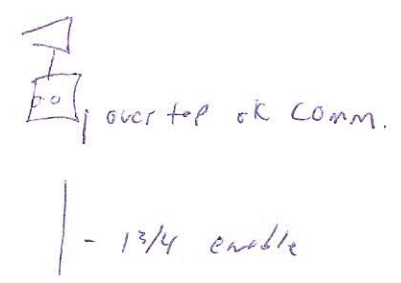 over top ok comm.
- 1 3/4 enable